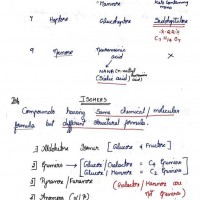 Mannose
Keto containing
7 Heptose Glucoheptose Sedoheptulose
C7 H14 O7
9 Nonose Neuraminic acid X
NANA (N-Acetyl
(Sialic acid)
ISOMERS
Compounds having Same chemical/molecular
formula but different structural formula.
1] Aldoketo Isomer [Glucose & Fructose]
2] Epimers → [Glucose/Galactose = C4 Epimers
Glucose/Mannose = C2 Epimers
3] Pyranose/Furanose (Galactose/Mannose are
not Epimers)
4] Anomers (α/β)